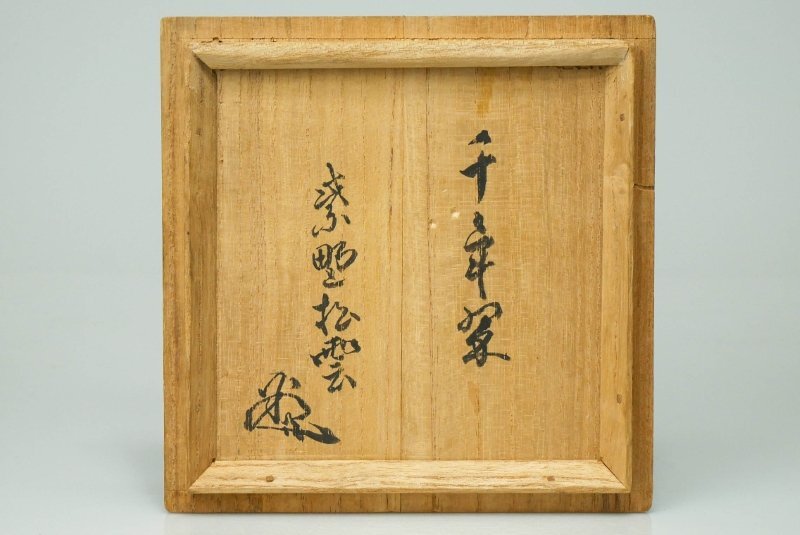 千年翠
紫野松雲